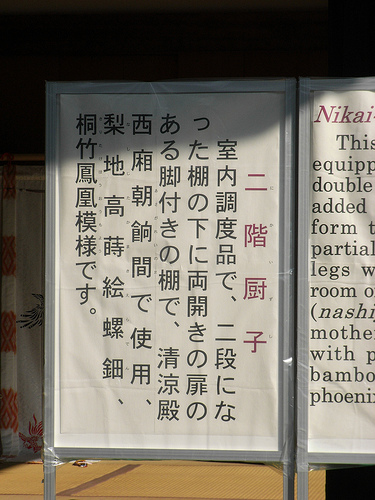 二階厨子
室内調度品で、二段にな
った棚の下に両開きの扉の
ある脚付きの棚で、清涼殿
西廂朝餉間で使用、
梨地高蒔絵螺鈿、
桐竹鳳凰模様です。
Nikai-
This
equipp
double
added
form t
partial
legs w
room o
(nashi
mothe
with p
bambo
phoeni